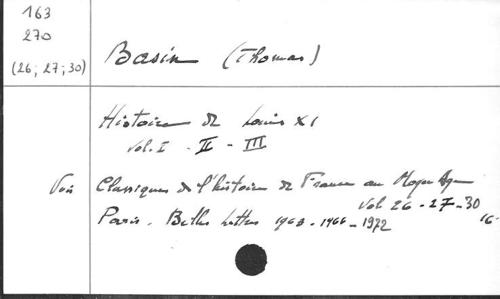 163
270
(26; 27; 30)
Basin (Thomas)
Histoire de Louis XI
Vol. I - II - III
Voir Classiques de l'histoire de France au Moyen Age
Vol 26 - 27 - 30
Paris. Belles Lettres 1963 - 1966 - 1972
16